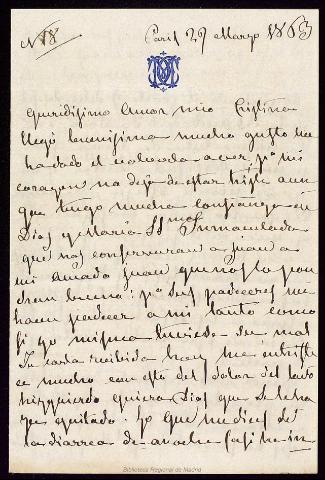 Nº 8
Paris 29 Marzo 1863
Queridisimo Amor mio Cristina
llegó buenisima mucho gusto me
ha dado el volverla a ver, pº mi
corazon no deja de estar triste aun
que tengo mucha confianza en
Dios y Maria SSma Inmaculada
que nos conservaran a Juan a
mi amado Juan que nos lo pon
dran bueno: pº sus padeceres me
hacen padecer a mi tanto como
si yo misma tuviese su mal
Tu carta recibida hoy me entriste
ce mucho con esto del dolor del lado
hizquierdo quiera Dios que se le ha
ya quitado: lo que me dices de
la diarrea de anoche
Biblioteca Regional de Madrid